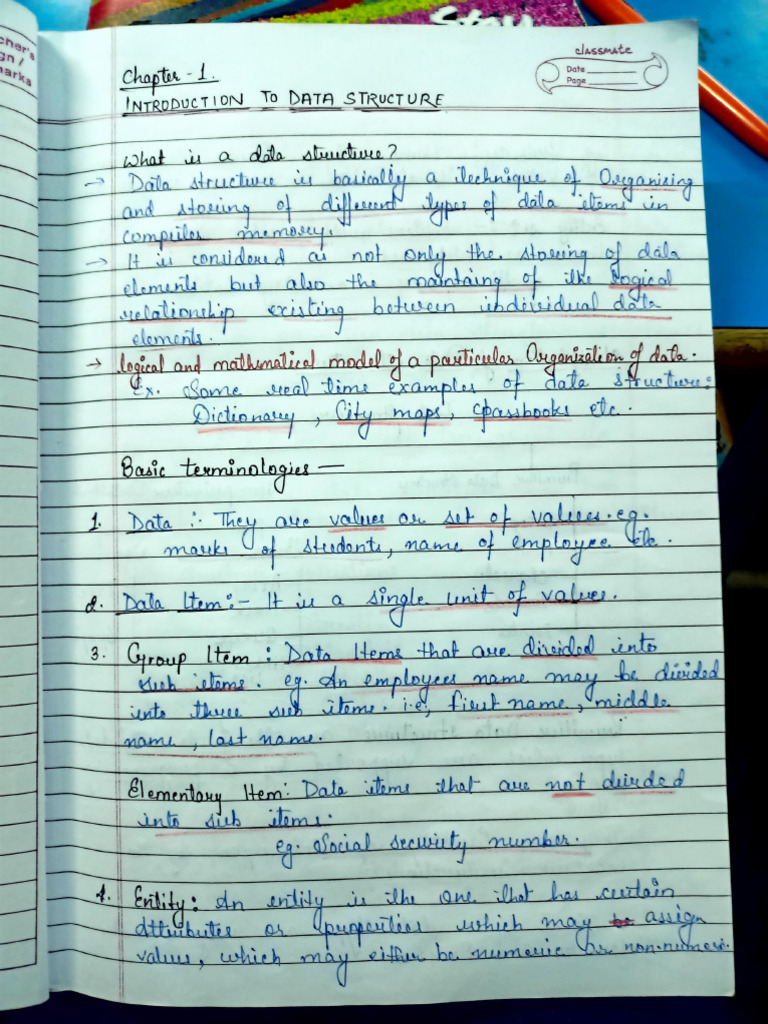 Stay
cher's
gn /
marks
classmate
Date
Page
Chapter - 1.
INTRODUCTION TO DATA STRUCTURE
What is a data structure?
→ Data structure is basically a technique of Organising
and storing of different types of data items in
computer memory.
→ It is considered as not only the storing of data
elements but also the maintaing of the logical
relationship existing between individual data
elements.
→ logical and mathematical model of a particular Organization of data.
Ex. Some real time examples of data structure:
Dictionary, City maps, passbooks etc.
Basic terminologies —
1. Data :- They are values or set of values. eg.
marks of students, name of employee etc.
2. Data Item:- It is a single unit of values.
3. Group Item : Data Items that are divided into
sub items. eg. An employees name may be divided
into three sub items. i.e, first name, middle
name, last name.
Elementary Item: Data items that are not divided
into sub items.
eg. Social security number.
4. Entity: An entity is the one that has certain
Attributes or properties which may assign
values, which may either be numeric or non-numeri.